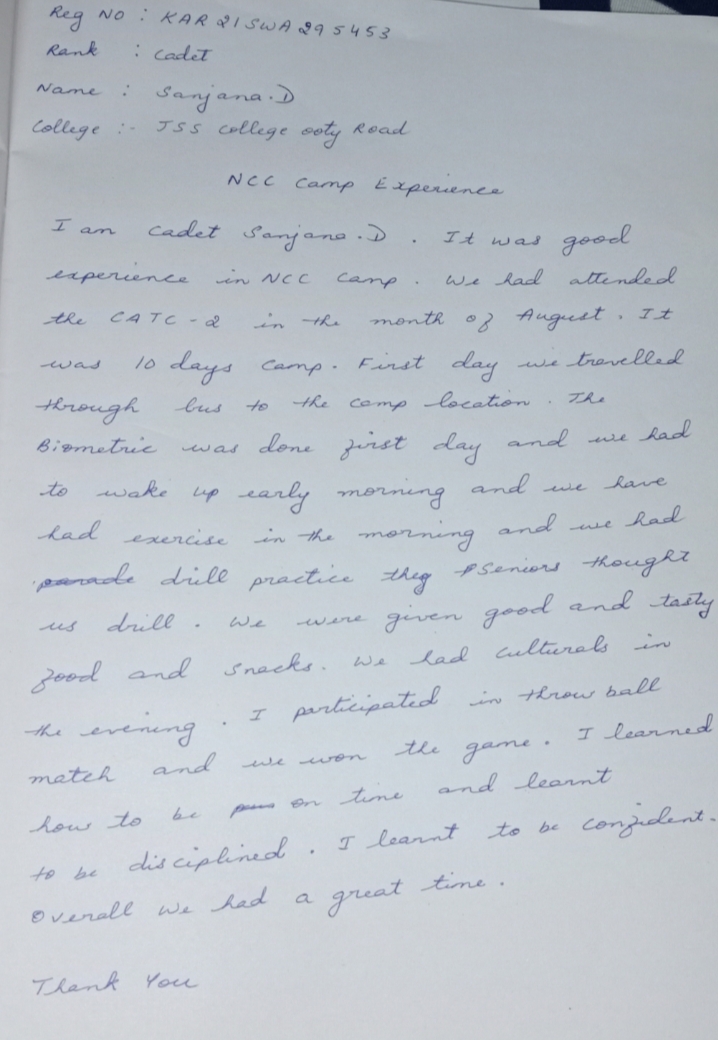 Reg No : KAR21SWA295453
Rank : Cadet
Name : Sanjana.D
College :- JSS college ooty Road
NCC Camp Experience
I am Cadet Sanjana.D . It was good
experience in NCC camp . We had attended
the CATC-2 in the month of August . It
was 10 days camp. First day we travelled
through bus to the camp location . The
Biometric was done first day and we had
to wake up early morning and we have
had exercise in the morning and we had
parade drill practice they Seniors thought
us drill . We were given good and tasty
food and snacks. We had culturals in
the evening . I participated in throw ball
match and we won the game. I learned
how to be on time and learnt
to be disciplined . I learnt to be confident.
Overall we had a great time .
Thank You